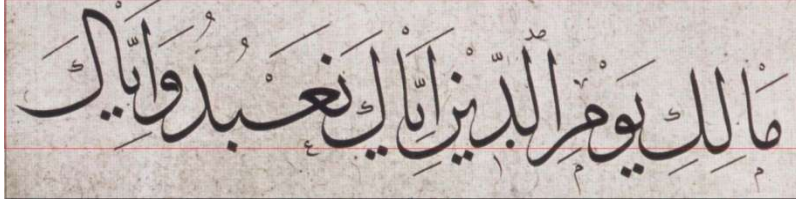 مَالِكِ يَوْمِ الدِّيْنِ اِيَّاكَ نَعْبُدُ وَاِيَّاكَ